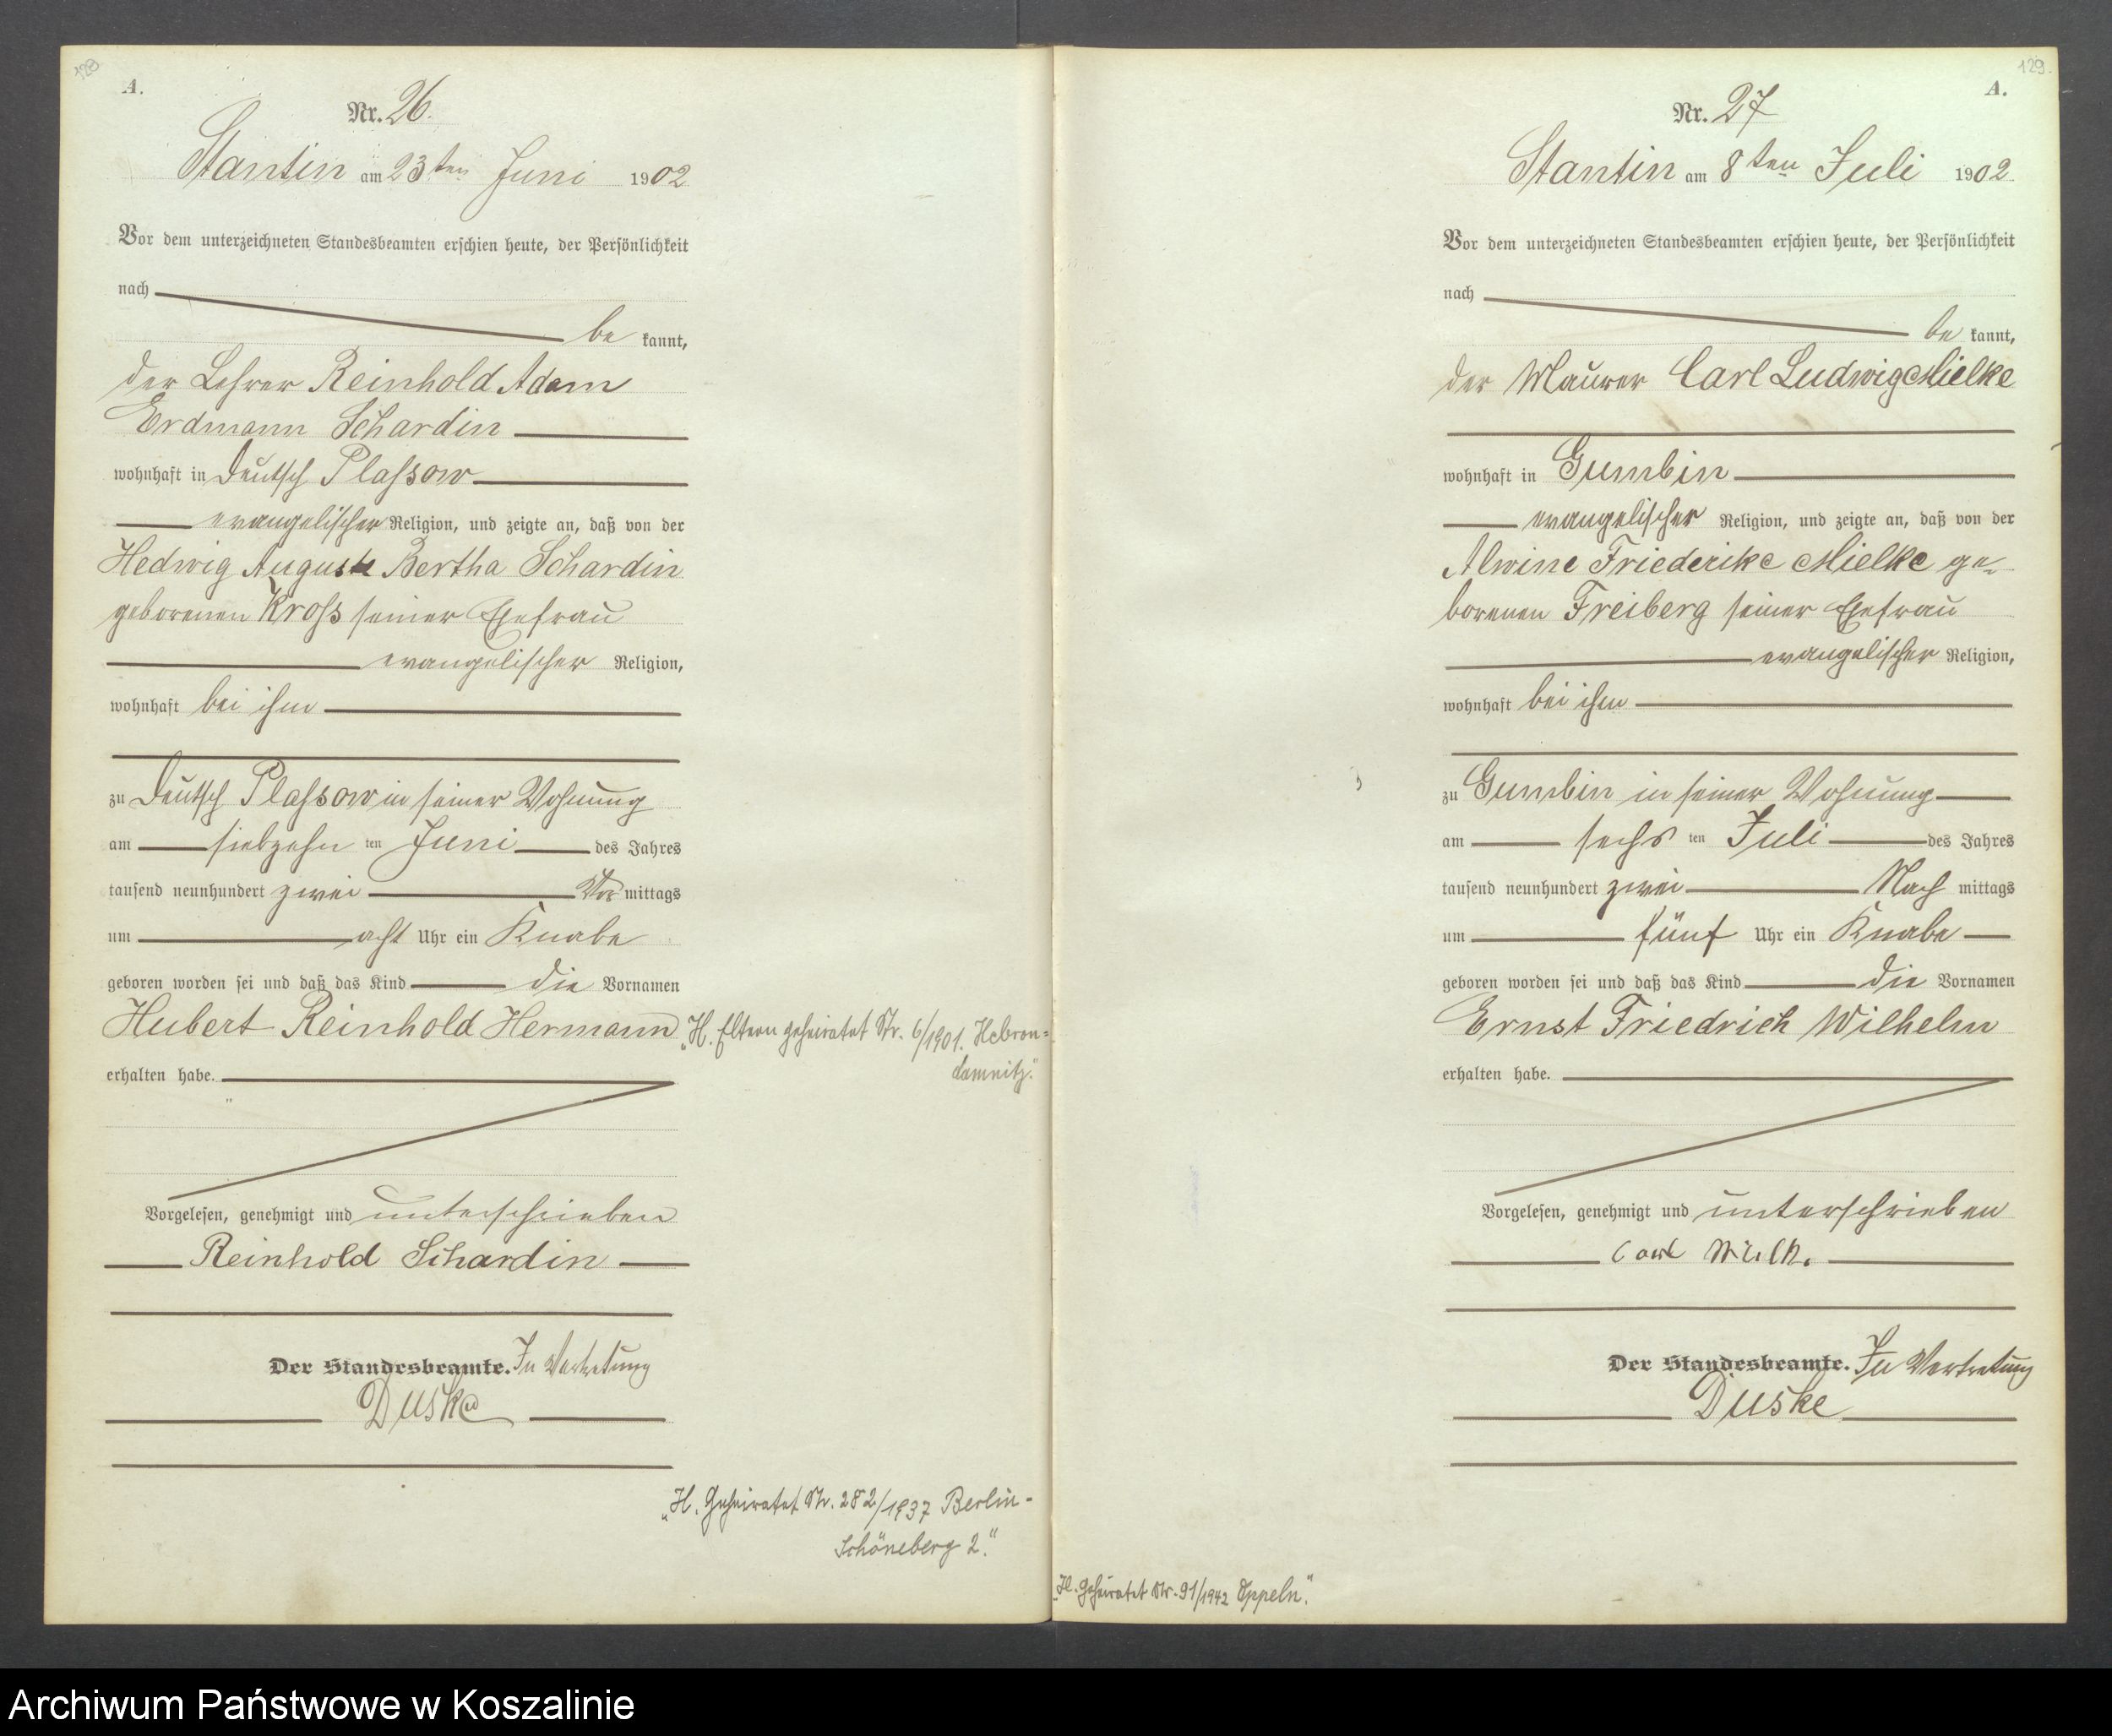 128
A.
Nr. 26.
Stantin am 23ten Juni 1902
Vor dem unterzeichneten Standesbeamten erschien heute, der Persönlichkeit
nach
be kannt,
der Lehrer Reinhold Adam
Erdmann Schardin
wohnhaft in Deutsch Plassow
evangelischer Religion, und zeigte an, daß von der
Hedwig Auguste Bertha Schardin
geborenen Kross seiner Ehefrau
evangelischer Religion,
wohnhaft bei ihm
zu Deutsch Plassow in seiner Wohnung
am siebzehn ten Juni des Jahres
tausend neunhundert zwei Vor mittags
um acht Uhr ein Knabe
geboren worden sei und daß das Kind die Vornamen
Hubert Reinhold Hermann
„H. Eltern geheiratet Nr. 6/1901. Hebron-
damnitz."
erhalten habe.
Vorgelesen, genehmigt und unterschrieben
Reinhold Schardin
Der Standesbeamte. In Vertretung
Duske
„H. Geheiratet Nr. 282/1937 Berlin-
Schöneberg 2."
129.
A.
Nr. 27
Stantin am 8ten Juli 1902
Vor dem unterzeichneten Standesbeamten erschien heute, der Persönlichkeit
nach
be kannt,
der Maurer Carl Ludwig Mielke
wohnhaft in Gumbin
evangelischer Religion, und zeigte an, daß von der
Alwine Friederike Mielke ge-
borenen Freiberg seiner Ehefrau
evangelischer Religion,
wohnhaft bei ihm
zu Gumbin in seiner Wohnung
am sechs ten Juli des Jahres
tausend neunhundert zwei Nach mittags
um fünf Uhr ein Knabe
geboren worden sei und daß das Kind die Vornamen
Ernst Friedrich Wilhelm
erhalten habe.
Vorgelesen, genehmigt und unterschrieben
Carl
Der Standesbeamte. In Vertretung
Duske
„H. Geheiratet Nr. 91/1942 Oppeln."
Archiwum Państwowe w Koszalinie